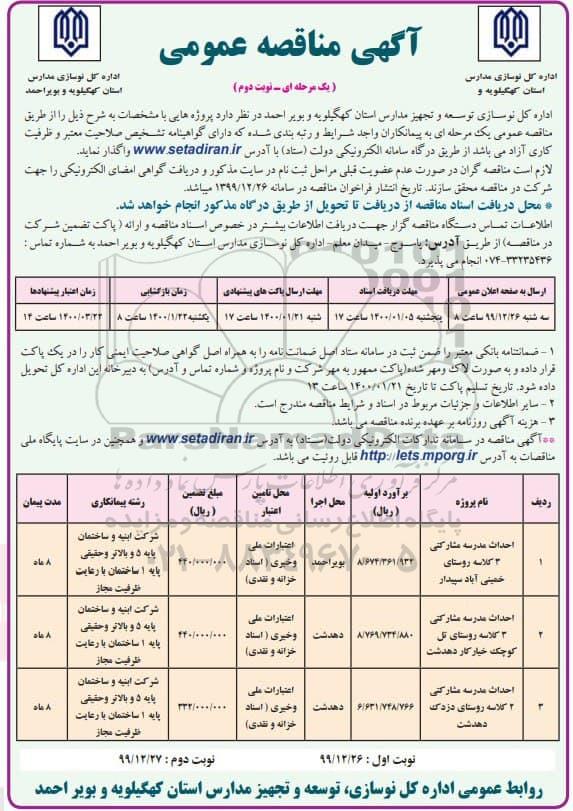 آگهی مناقصه عمومی
( یک مرحله ای ــ نوبت دوم )
اداره کل نوسازی مدارس
استان کهگیلویه و
اداره کل نوسازی مدارس
استان کهگیلویه و بویراحمد
اداره کل نوسازی توسعه و تجهیز مدارس استان کهگیلویه و بویر احمد در نظر دارد پروژه هایی با مشخصات به شرح ذیل را از طریق
مناقصه عمومی یک مرحله ای به پیمانکاران واجد شرایط و رتبه بندی شده که دارای گواهینامه تشخیص صلاحیت معتبر و ظرفیت
کاری آزاد می باشد از طریق درگاه سامانه الکترونیکی دولت (ستاد) با آدرس www.setadiran.ir واگذار نماید.
لازم است مناقصه گران در صورت عدم عضویت قبلی مراحل ثبت نام در سایت مذکور و دریافت گواهی امضای الکترونیکی را جهت
شرکت در مناقصه محقق سازند. تاریخ انتشار فراخوان مناقصه در سامانه ۱۳۹۹/۱۲/۲۶ میباشد.
* محل دریافت اسناد مناقصه از دریافت تا تحویل از طریق درگاه مذکور انجام خواهد شد.
اطلاعات تماس دستگاه مناقصه گزار جهت دریافت اطلاعات بیشتر در خصوص اسناد مناقصه و ارائه ( پاکت تضمین شرکت
در مناقصه) از طریق آدرس: یاسوج- میدان معلم- اداره کل نوسازی مدارس استان کهگیلویه و بویر احمد به شماره تماس :
۰۷۴-۳۳۲۳۵۴۳۶ انجام می پذیرد.
ارسال به صفحه اعلان عمومی	مهلت دریافت اسناد	مهلت ارسال پاکت های پیشنهادی	زمان بازگشایی	زمان اعتبار پیشنهادها
سه شنبه ۹۹/۱۲/۲۶ ساعت ۸	پنجشنبه ۱۴۰۰/۰۱/۰۵ ساعت ۱۷	شنبه ۱۴۰۰/۰۱/۲۱ ساعت ۱۷	یکشنبه ۱۴۰۰/۱/۲۲ ساعت ۸	۱۴۰۰/۰۳/۲۲ ساعت ۱۴
۱ - ضمانتنامه بانکی معتبر را ضمن ثبت در سامانه ستاد اصل ضمانت نامه را به همراه اصل گواهی صلاحیت ایمنی کار را در یک پاکت
قرار داده و به صورت لاک ومهر شده(پاکت ممهور به مهر شرکت و نام پروژه و شماره تماس و آدرس) به دبیرخانه این اداره کل تحویل
داده شود. تاریخ تسلیم پاکت تا تاریخ ۱۴۰۰/۰۱/۲۱ ساعت ۱۳
۲ - سایر اطلاعات و جزئیات مربوط در اسناد و شرایط مناقصه مندرج است.
۳ - هزینه آگهی روزنامه بر عهده برنده مناقصه می باشد.
**آگهی مناقصه در سامانه تدارکات الکترونیکی دولت(ستاد) به آدرس www.setadiran.ir و همچنین در سایت پایگاه ملی
مناقصات به آدرس http://iets.mporg.ir قابل روئیت می باشد.
ردیف	نام پروژه	برآورد اولیه ( ریال)	محل اجرا	محل تامین اعتبار	مبلغ تضمین ( ریال)	رشته پیمانکاری	مدت پیمان
۱	احداث مدرسه مشارکتی ۳ کلاسه روستای خمینی آباد سپیدار	۸/۶۷۴/۳۶۱/۹۳۲	بویراحمد	اعتبارات ملی وخیری ( اسناد خزانه و نقدی)	۴۴۰/۰۰۰/۰۰۰	شرکت ابنیه و ساختمان پایه ۵ و بالاتر وحقیقی پایه ۱ ساختمان با رعایت ظرفیت مجاز	۸ ماه
۲	احداث مدرسه مشارکتی ۳ کلاسه روستای تل کوچک خیارکار دهدشت	۸/۷۶۹/۷۳۴/۸۸۰	دهدشت	اعتبارات ملی وخیری ( اسناد خزانه و نقدی)	۴۴۰/۰۰۰/۰۰۰	شرکت ابنیه و ساختمان پایه ۵ و بالاتر وحقیقی پایه ۱ ساختمان با رعایت ظرفیت مجاز	۸ ماه
۳	احداث مدرسه مشارکتی ۲ کلاسه روستای دزدک دهدشت	۶/۶۳۱/۷۴۸/۷۶۶	دهدشت	اعتبارات ملی وخیری ( اسناد خزانه و نقدی)	۳۳۲/۰۰۰/۰۰۰	شرکت ابنیه و ساختمان پایه ۵ و بالاتر وحقیقی پایه ۱ ساختمان با رعایت ظرفیت مجاز	۸ ماه
نوبت اول : ۹۹/۱۲/۲۶	نوبت دوم : ۹۹/۱۲/۲۷
روابط عمومی اداره کل نوسازی، توسعه و تجهیز مدارس استان کهگیلویه و بویر احمد